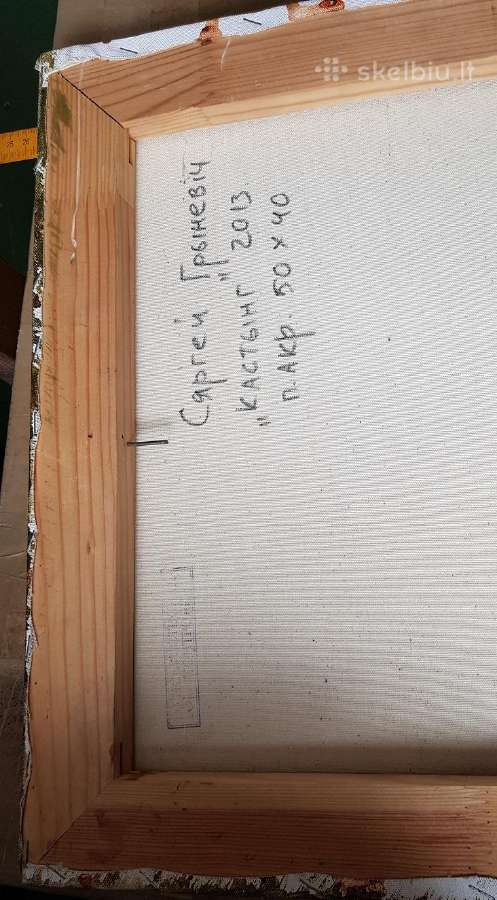 Сяргей Грыневіч
"КАСТЫНГ" 2013
п. акр. 50 x 40
skelbiu.lt
25 26